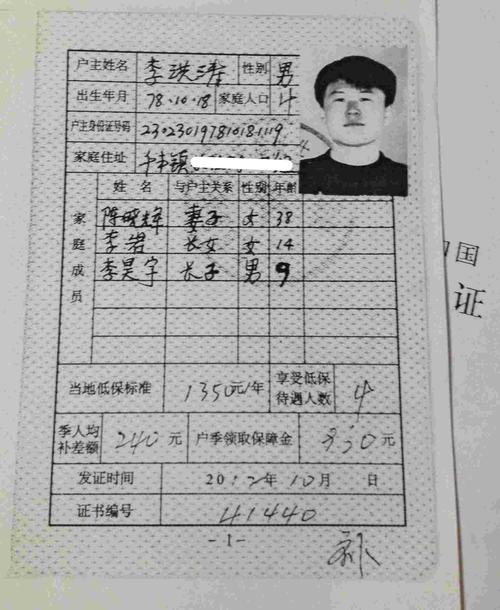 户主姓名 李洪涛 性别 男
出生年月 78.10.18 家庭人口 4
户主身份证号码 230230197810181119
家庭住址
家庭成员 姓名 与户主关系 性别 年龄
陈晓辉 妻子 女 38
李岩 长女 女 14
李昊宇 长子 男 9
当地低保标准 1350元/年 享受低保待遇人数 4
季人均补差额 240元 户季领取保障金
发证时间 2012年10月 日
证书编号 41440
-1-
国
证